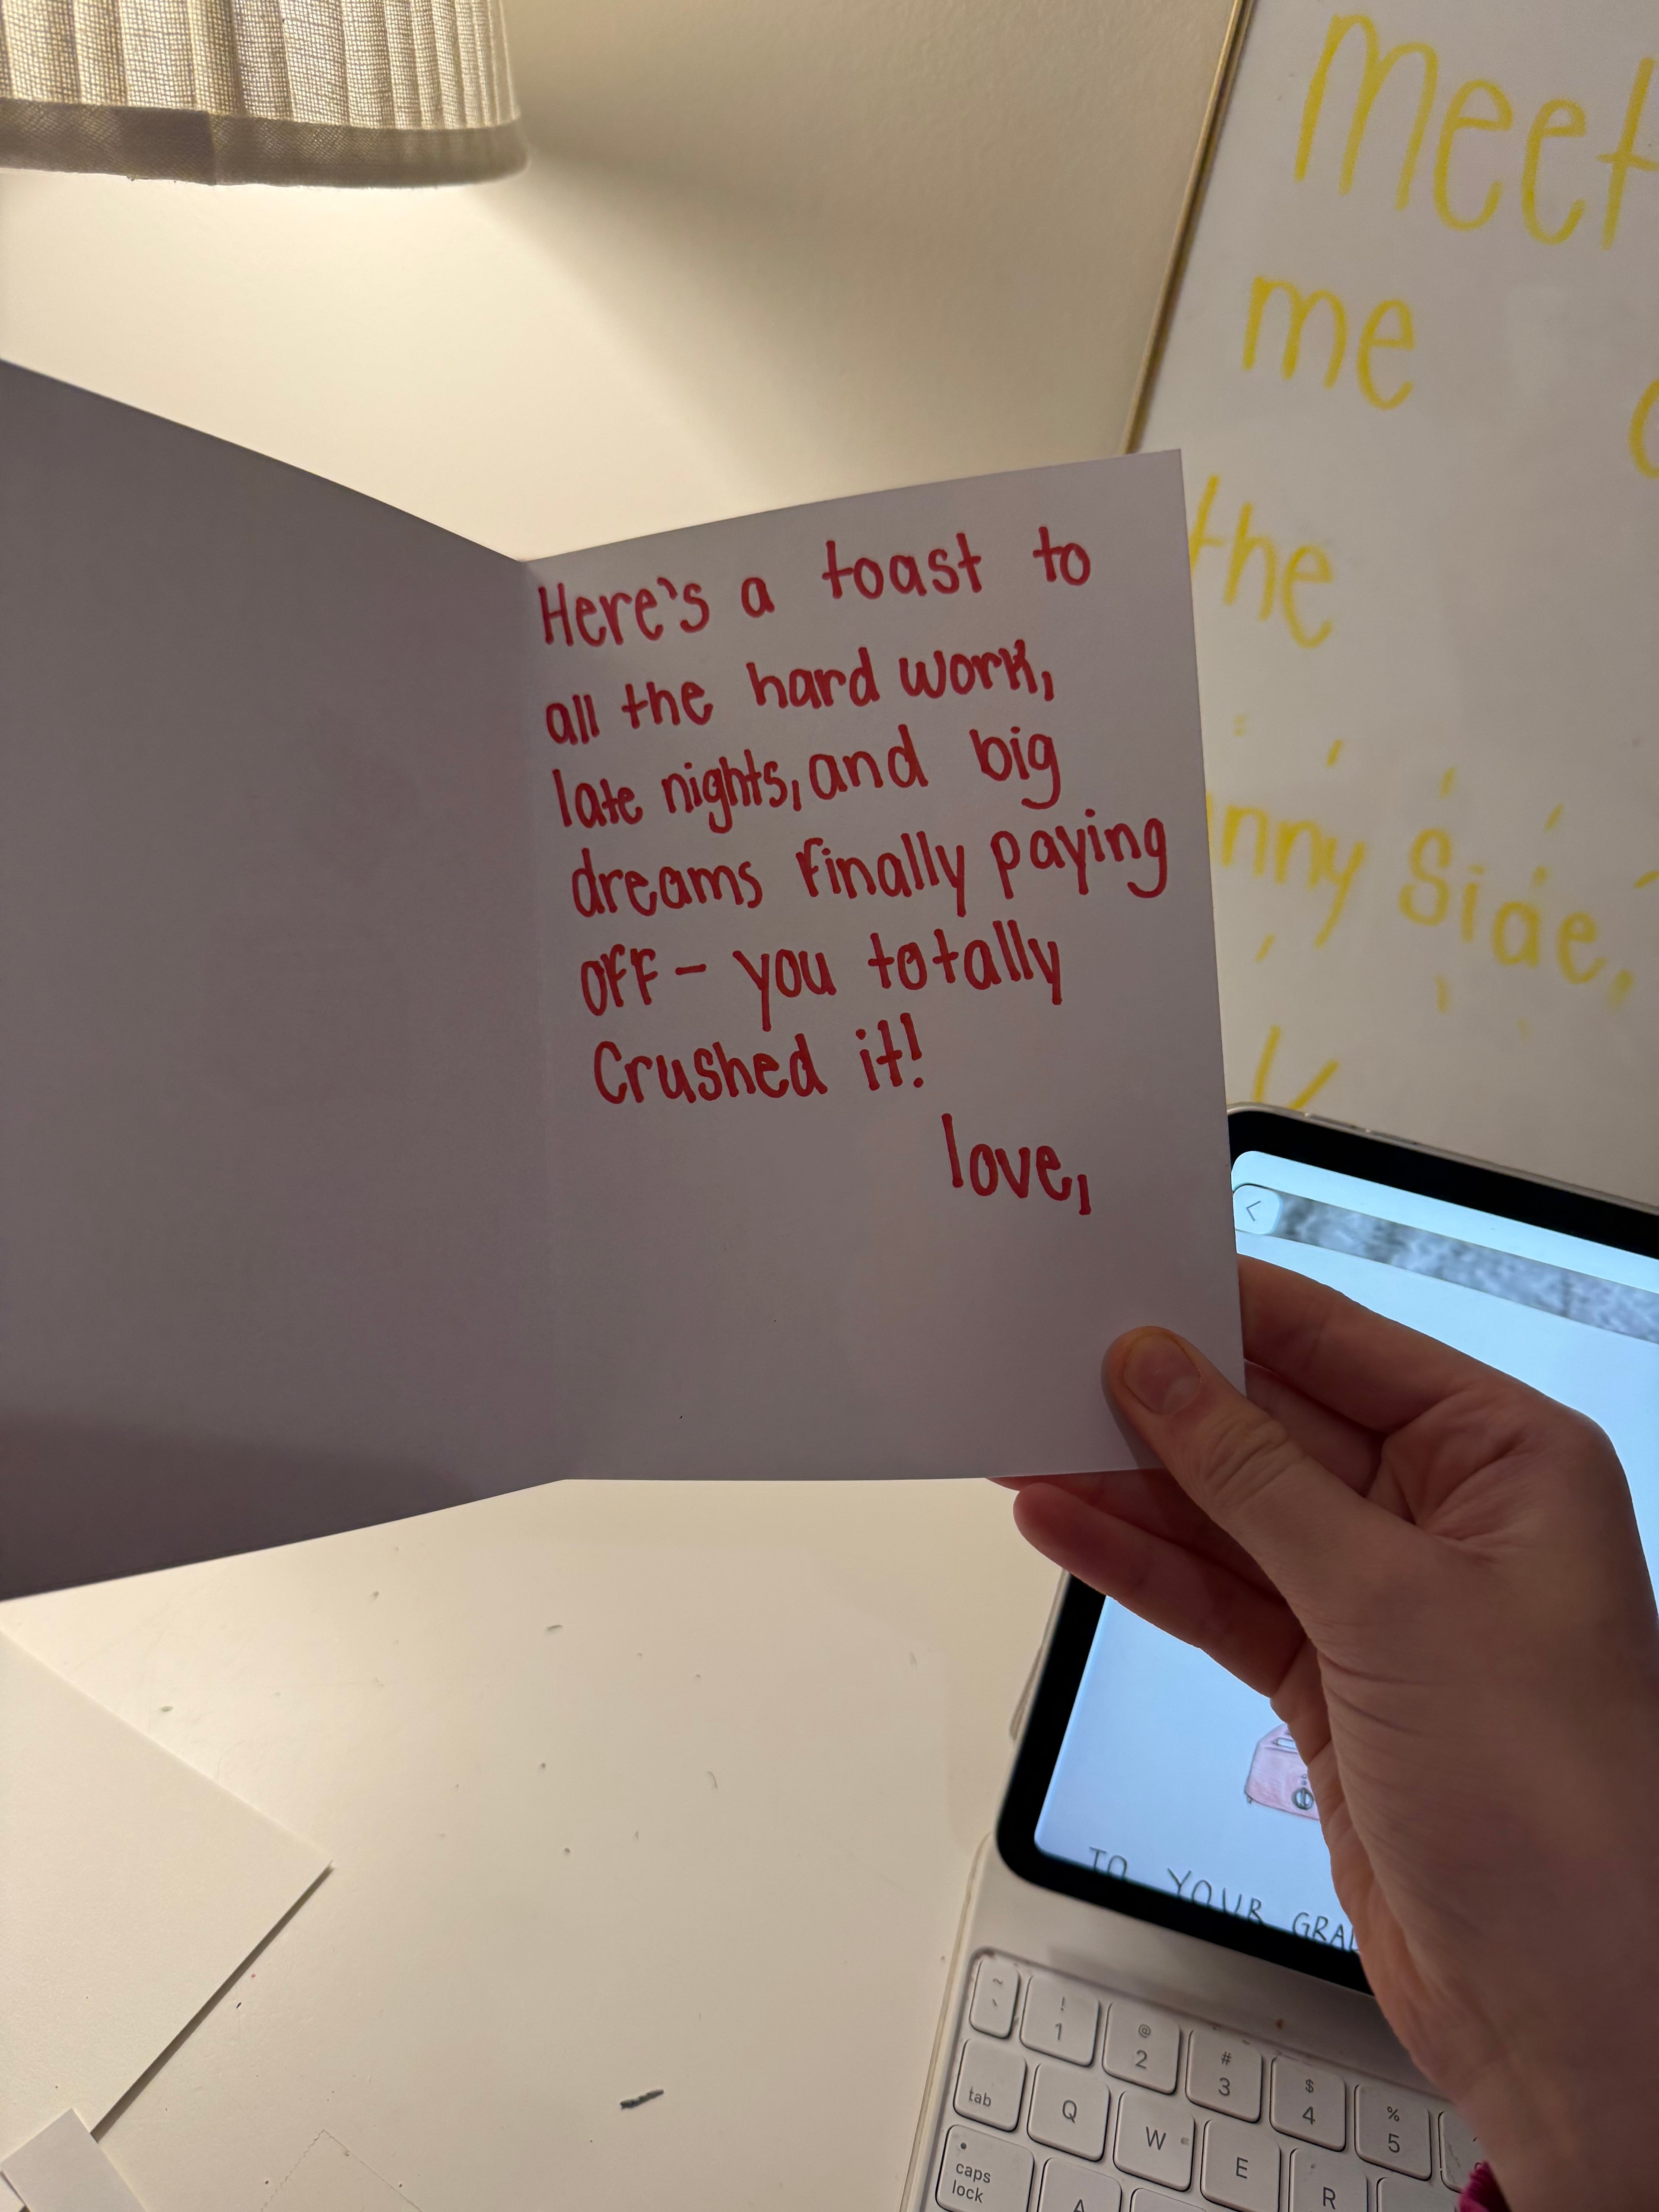 Here's a toast to
all the hard work,
late nights, and big
dreams finally paying
off - you totally
Crushed it!
love,
meet
me
the
nny Side,
TO YOUR GRAD
~
`
!
1
@
2
#
3
$
4
%
5
tab
Q
W
E
R
caps
lock
A